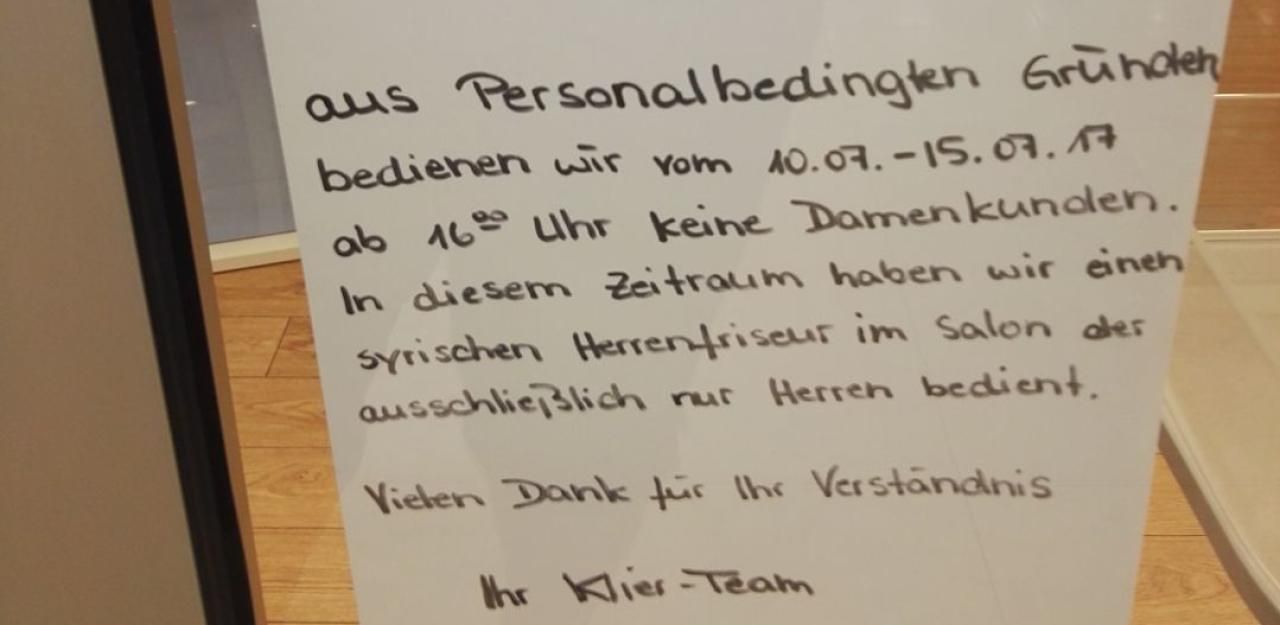 aus Personalbedingten Gründen
bedienen wir vom 10.07.-15.07.17
ab 16⁰⁰ Uhr keine Damenkunden.
In diesem Zeitraum haben wir einen
syrischen Herrenfriseur im Salon der
ausschließlich nur Herren bedient.
Vielen Dank für Ihr Verständnis
Ihr Klier-Team